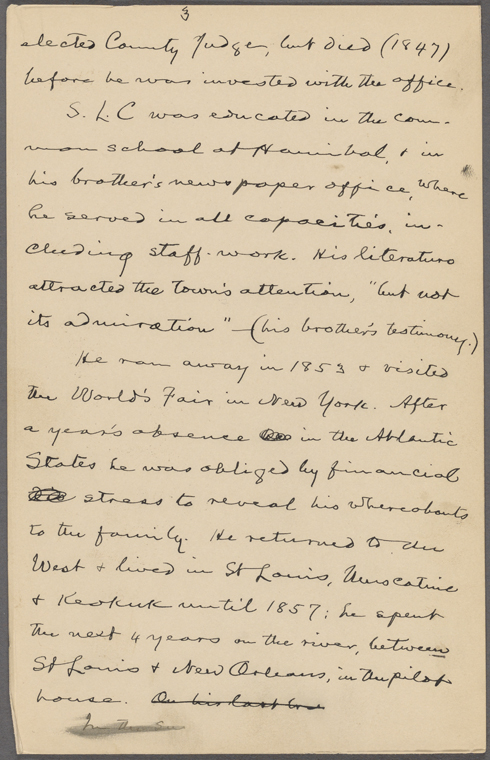 3
elected County Judge, but died (1847)
before he was invested with the office.
S. L. C was educated in the com-
mon school at Hannibal, & in
his brother's newspaper office, where
he served in all capacities, in-
cluding staff-work. His literature
attracted the town's attention, "but not
its admiration" — (his brother's testimony.)
He ran away in 1853 & visited
the World's Fair in New York. After
a year's absence in the Atlantic
States he was obliged by financial
stress to reveal his whereabouts
to the family. He returned to the
West & lived in St Louis, Muscatine
& Keokuk until 1857; he spent
the next 4 years on the river, between
St Louis & New Orleans, in the pilot
house. On his last
In the